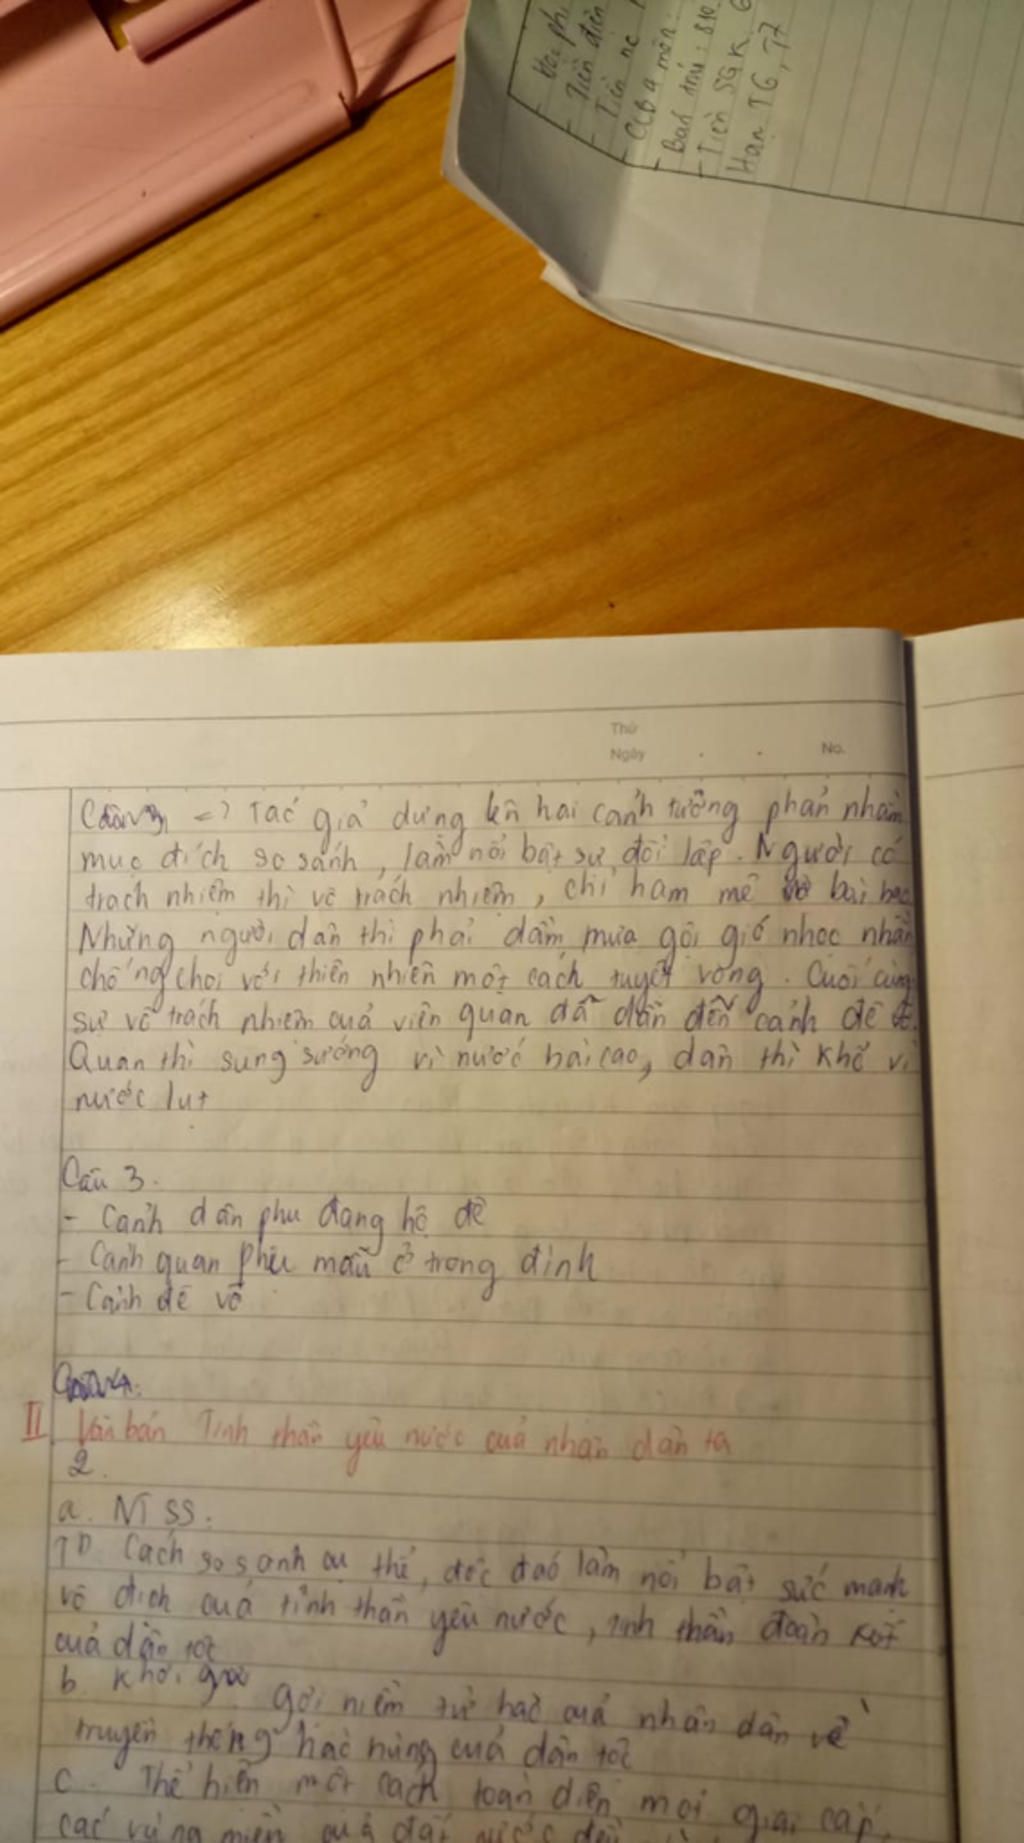 Tiền điện
Tiền nc
CLB 4 môn:
Bán trú: 810.
- Tiền SGK. 6
Hạn TG, T7
Thứ
Ngày . . No.
=> Tác giả dựng lên hai cảnh tưởng phản nhằm
mục đích so sánh, làm nổi bật sự đối lập. Người có
trách nhiệm thì vô trách nhiệm, chỉ ham mê bài bạc
Những người dân thì phải dầm mưa gội gió nhọc nhằn
chống chọi với thiên nhiên một cách tuyệt vọng. Cuối cùng
sự vô trách nhiệm của viên quan đã dẫn đến cảnh đê vỡ.
Quan thì sung sướng vì nước bài cao, dân thì khổ vì
nước lụt
Câu 3.
- Cảnh dân phu đang hộ đê
- Cảnh quan phụ mẫu ở trong đình
- Cảnh đê vỡ
II Văn bản Tinh thần yêu nước của nhân dân ta
2.
a. NT SS.
TD Cách so sánh cụ thể, độc đáo làm nổi bật sức mạnh
vô địch của tinh thần yêu nước, tinh thần đoàn kết
của dân tộc
b. Khơi gợi gợi niềm tự hào của nhân dân về
truyền thống hào hùng của dân tộc
c. Thể hiện một cách toàn diện mọi giai cấp,
các vùng miền của đất nước đều